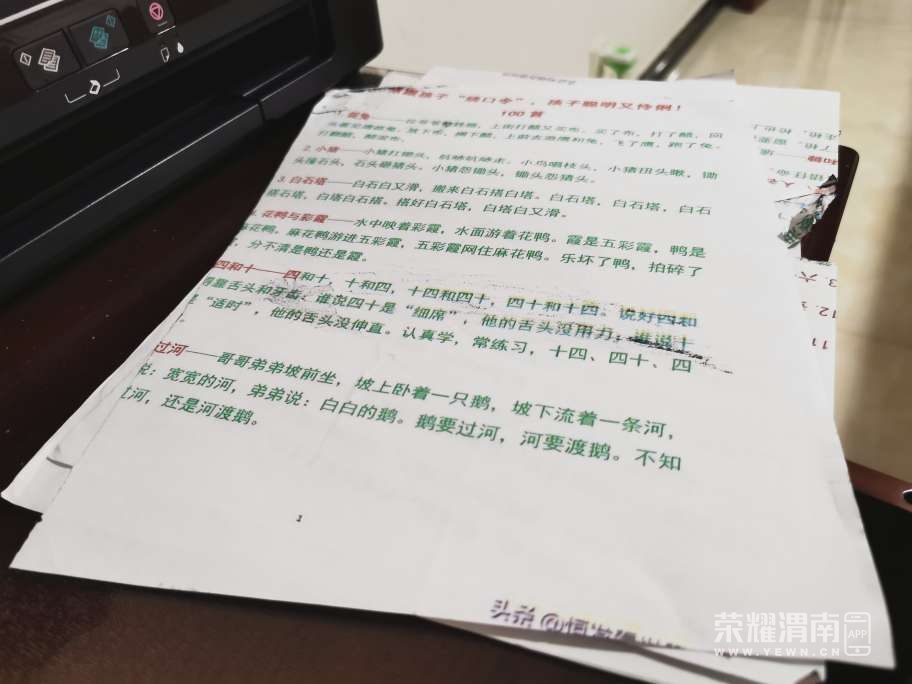 孩子“绕口令”，孩子聪明又伶俐！
100 首
上街打醋又买布，买了布，打了醋，回
放下布，搁下醋，上前去追鹰和兔，飞了鹰，跑了兔，
2. 小猪——小猪扛锄头，吭哧吭哧走。小鸟唱枝头，小猪扭头瞅，锄
头撞石头，石头砸猪头。小猪怨锄头，锄头怨猪头。
3. 白石塔——白石白又滑，搬来白石搭白塔。白石塔，白石塔，白石
搭石塔，白塔白石搭。搭好白石塔，白塔白又滑。
花鸭与彩霞——水中映着彩霞，水面游着花鸭。霞是五彩霞，鸭是
麻花鸭。麻花鸭游进五彩霞，五彩霞网住麻花鸭。乐坏了鸭，拍碎了
，分不清是鸭还是霞。
四和十——四和十，十和四，十四和四十，四十和十四。说好四和
靠舌头和牙齿：谁说四十是“细席”，他的舌头没用力；谁说十
“适时”，他的舌头没伸直。认真学，常练习，十四、四十、四
过河——哥哥弟弟坡前坐，坡上卧着一只鹅，坡下流着一条河，
说：宽宽的河，弟弟说：白白的鹅。鹅要过河，河要渡鹅。不知
过河，还是河渡鹅。
1
头条 @
荣耀渭南 APP
WWW.YEWN.CN